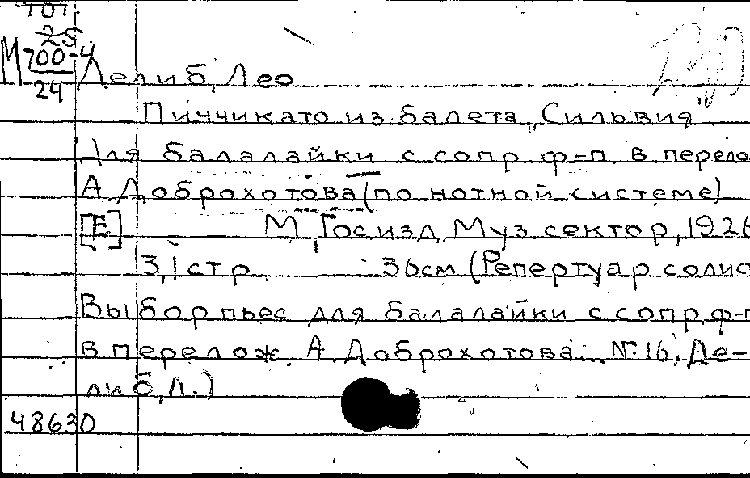 тот.
25
М 700-4
24
Делиб, Лео
Пиччикато из балета „Сильвия"
для балалайки с сопр. ф-п. в перело
А. Доброхотова (по нотной системе)
[Е] М., Гос. изд. Муз. сектор, 1926
3,1 стр. 36 см (Репертуар солис
Выбор пьес для балалайки с сопр. ф-п
в перелож. А. Доброхотова. №16. Де-
либ, Л.)
48630